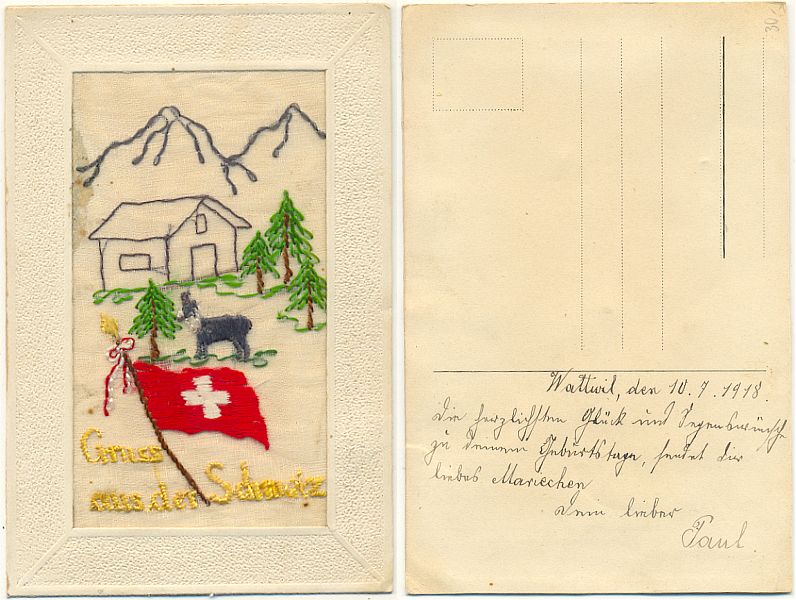 Gruss
aus der Schweiz
30.-
Wattwil, den 10.7.1918.
Die herzlichsten Glück und Segenswünsche
zu deinem Geburtstage, sendet dir
liebes Mariechen
Dein lieber
Paul.